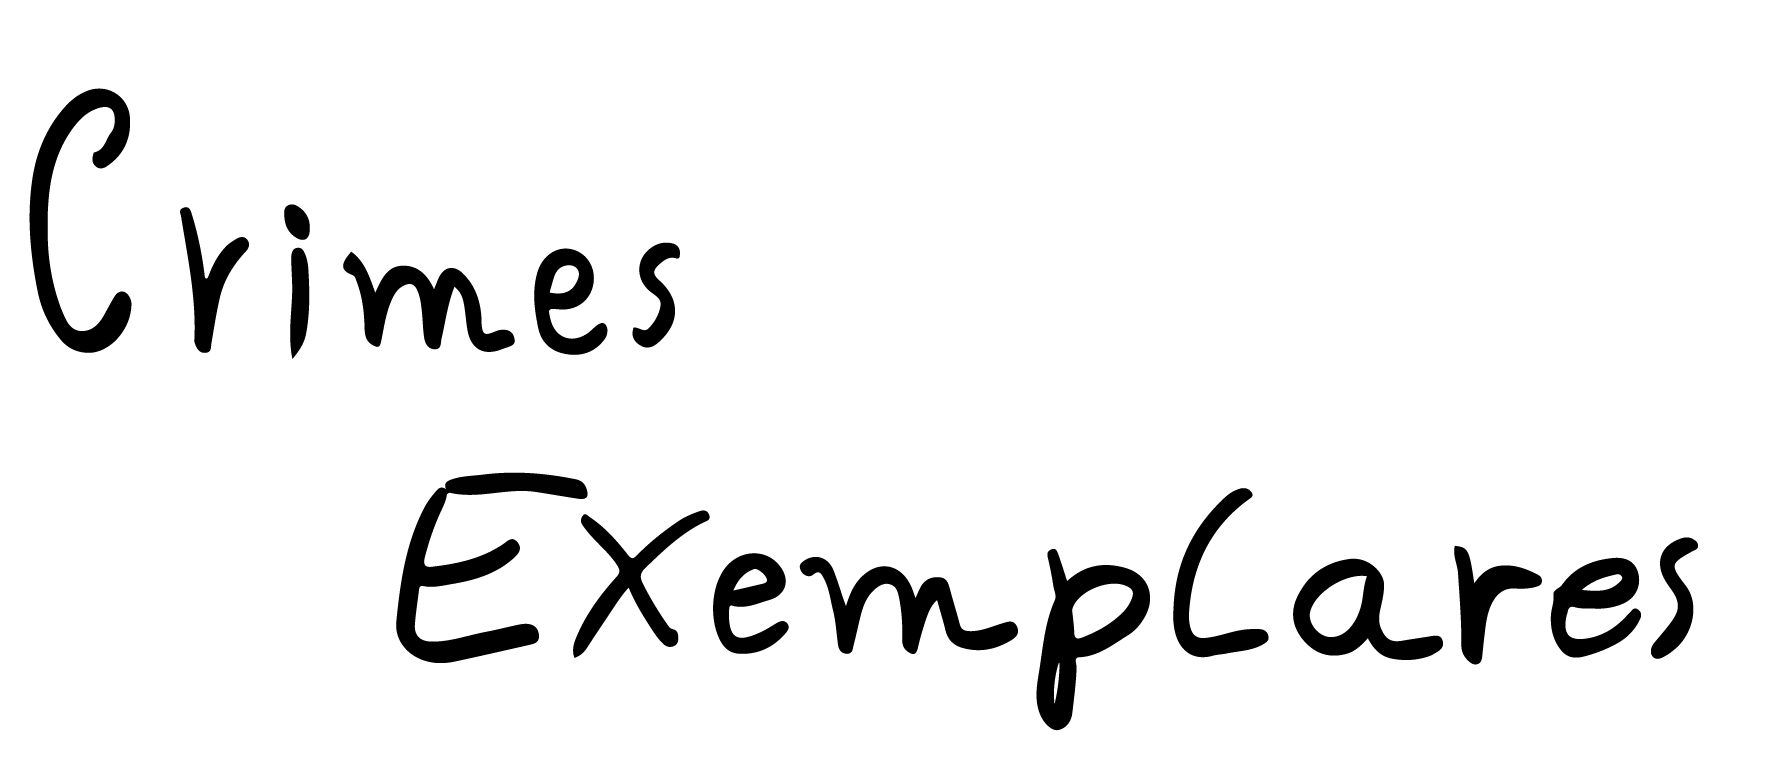 Crimes
Exemplares